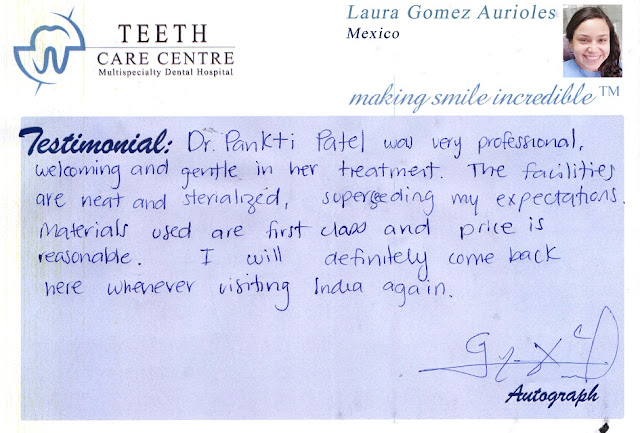 TEETH
CARE CENTRE
Multispecialty Dental Hospital
Laura Gomez Aurioles
Mexico
making smile incredible™
Testimonial: Dr. Pankti Patel was very professional,
welcoming and gentle in her treatment. The facilities
are neat and sterialized, superseding my expectations.
Materials used are first class and price is
reasonable. I will definitely come back
here whenever visiting India again.
Autograph